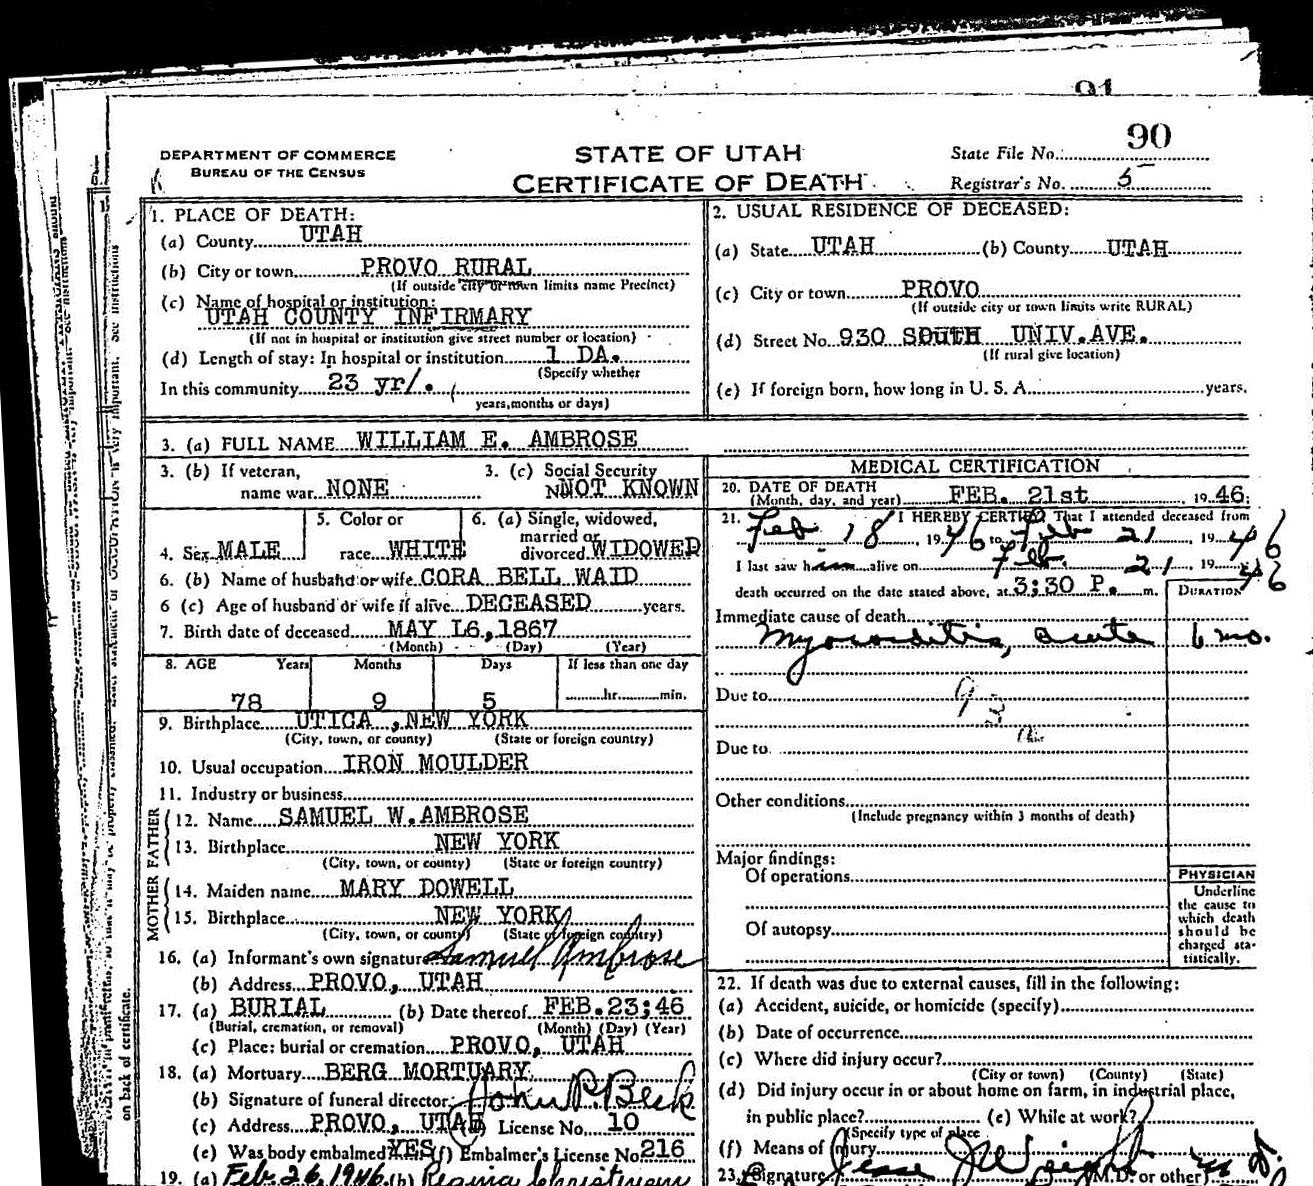 91
90
DEPARTMENT OF COMMERCE
BUREAU OF THE CENSUS
STATE OF UTAH
CERTIFICATE OF DEATH
State File No.
Registrar's No. 5
1. PLACE OF DEATH:
(a) County UTAH
(b) City or town PROVO RURAL
(If outside city or town limits name Precinct)
(c) Name of hospital or institution:
UTAH COUNTY INFIRMARY
(If not in hospital or institution give street number or location)
(d) Length of stay: In hospital or institution 1 DA.
(Specify whether
In this community 23 yr/.
years, months or days)
2. USUAL RESIDENCE OF DECEASED:
(a) State UTAH (b) County UTAH
(c) City or town PROVO
(If outside city or town limits write RURAL)
(d) Street No. 930 SOUTH UNIV.AVE.
(If rural give location)
(e) If foreign born, how long in U. S. A. years.
3. (a) FULL NAME WILLIAM E. AMBROSE
3. (b) If veteran, name war NONE
3. (c) Social Security NOT KNOWN
4. Sex MALE
5. Color or race WHITE
6. (a) Single, widowed, married or divorced WIDOWED
6. (b) Name of husband or wife CORA BELL WAID
6 (c) Age of husband or wife if alive DECEASED years.
7. Birth date of deceased MAY 16, 1867
(Month) (Day) (Year)
8. AGE Years Months Days If less than one day
78 9 5 hr. min.
9. Birthplace UTICA , NEW YORK
(City, town, or county) (State or foreign country)
10. Usual occupation IRON MOULDER
11. Industry or business
FATHER
12. Name SAMUEL W. AMBROSE
13. Birthplace NEW YORK
(City, town, or county) (State or foreign country)
MOTHER
14. Maiden name MARY DOWELL
15. Birthplace NEW YORK
(City, town, or county) (State or foreign country)
16. (a) Informant's own signature Samuel Ambrose
(b) Address PROVO, UTAH
17. (a) BURIAL (b) Date thereof FEB.23;46
(Burial, cremation, or removal) (Month) (Day) (Year)
(c) Place: burial or cremation PROVO, UTAH
18. (a) Mortuary BERG MORTUARY
(b) Signature of funeral director John P. Beck
(c) Address PROVO, UTAH License No. 10
(e) Was body embalmed YES (f) Embalmer's License No. 216
19. (a) Feb. 26, 1946 (b) Regina Christensen
MEDICAL CERTIFICATION
20. DATE OF DEATH
(Month, day, and year) FEB. 21st, 1946
21. I HEREBY CERTIFY, That I attended deceased from
Feb. 18, 1946 to Feb 21, 1946
I last saw him alive on Feb. 21, 1946
death occurred on the date stated above, at 3:30 P. m.
DURATION
Immediate cause of death
Myocarditis, acute 6 mo.
Due to
Due to
Other conditions
(Include pregnancy within 3 months of death)
Major findings:
Of operations
Of autopsy
PHYSICIAN
Underline
the cause to
which death
should be
charged sta-
tistically.
22. If death was due to external causes, fill in the following:
(a) Accident, suicide, or homicide (specify)
(b) Date of occurrence
(c) Where did injury occur?
(City or town) (County) (State)
(d) Did injury occur in or about home on farm, in industrial place,
in public place? (e) While at work?
(Specify type of place
(f) Means of injury
23. Signature Jesse J. Weight M.D.
(M.D. or other)
on back of certificate.